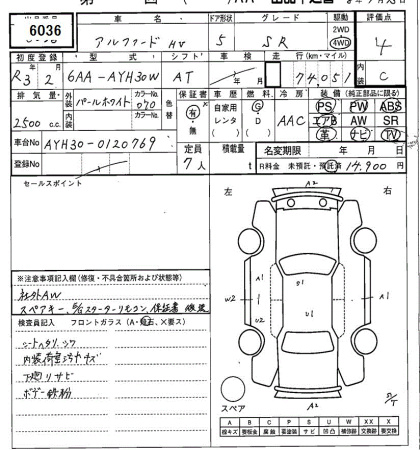 6036
車 名 ドア形状 グレード 駆動 評価点
アルファード HV 5 SR 2WD 4WD 4
初度登録 型 式 シフト 車 検 走行(km・マイル) 内装
R3年 2月 6AA-AYH30W AT 年 月 74,051 C
排気量 外装 カラーNo. 色替 保証書 車歴 燃料 冷房 装備(純正部品に限る)
2500 c.c. パールホワイト 070 有・無 自家用 レンタ ( ) G D ( ) AAC PS PW ABS
内装 カラーNo. エアB AW SR
革 ナビ TV
車台No AYH30-0120769 定員 7人 積載量 t 名変期限 年 月 日
登録No R料金 未預託・預託済 14,900 円
セールスポイント
左 右
A2
※注意事項記入欄(修復・不具合箇所および状態等)
社外AW
スペアキー、E/Gスターターリモコン、保証書 後送
検査員記入 フロントガラス(A・飛石、×要ス)
シートヘタリ、シワ
内装荷室汚れキズ
下廻りサビ
ボデー鉄粉
A1 S1 A1
W2 U1
U2
スペア A2
A B C P S U W X XX
線キズ 要板金 腐蝕 要塗装 サビ 凹凸 補修跡 交換跡 要交換